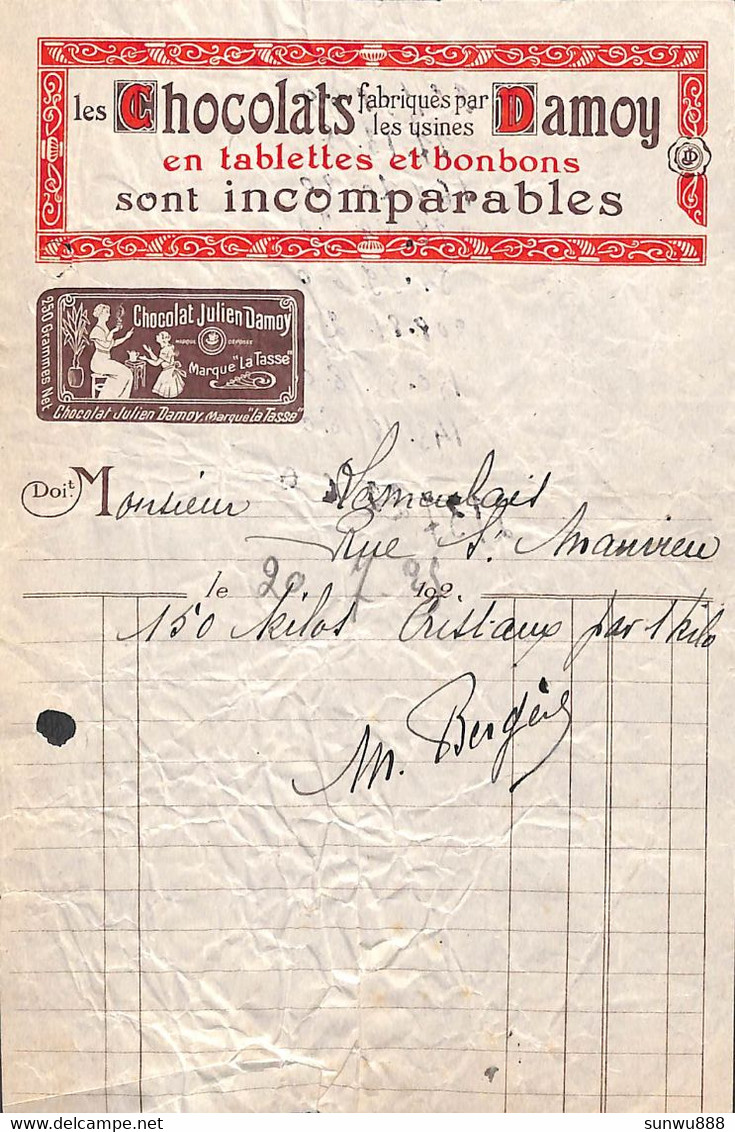 les Chocolats fabriqués par les usines Damoy
en tablettes et bonbons
sont incomparables
250 Grammes Net
Chocolat Julien Damoy
MARQUE DÉPOSÉE
Marque "La Tasse"
Chocolat Julien Damoy, Marque "La Tasse"
Doit Monsieur
Rue St Manvieu
le 20 7 192
150 kilos Cristaux par 1 kilo
M. Bergère
sunwu888